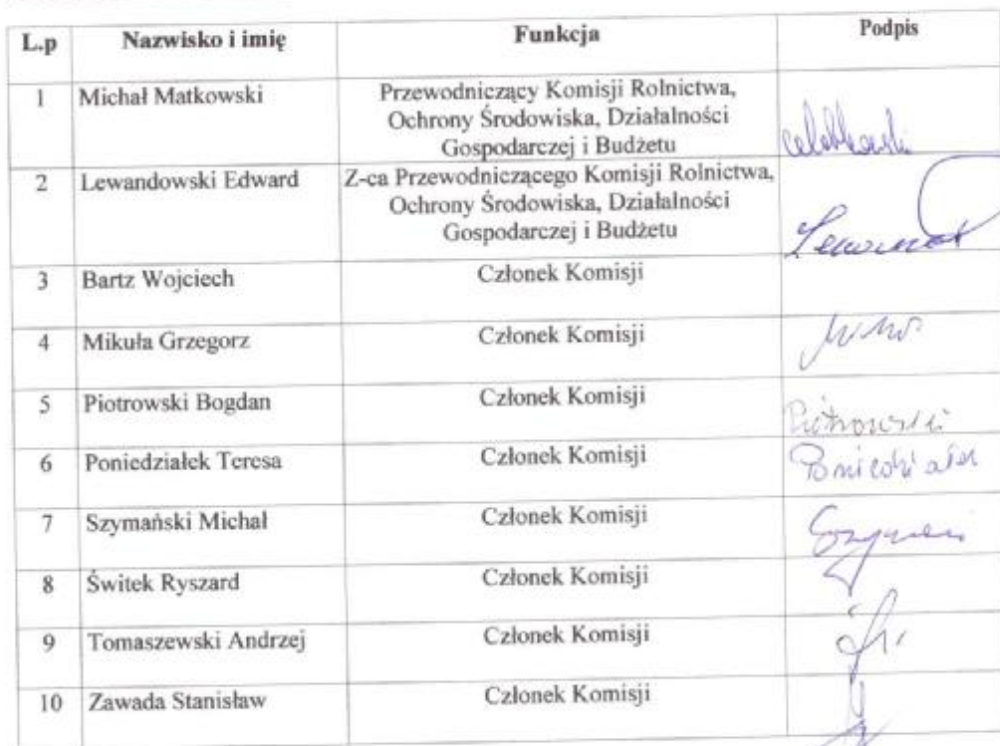 L.p Nazwisko i imię Funkcja Podpis
1 Michał Matkowski Przewodniczący Komisji Rolnictwa,
Ochrony Środowiska, Działalności
Gospodarczej i Budżetu
2 Lewandowski Edward Z-ca Przewodniczącego Komisji Rolnictwa,
Ochrony Środowiska, Działalności
Gospodarczej i Budżetu
3 Bartz Wojciech Członek Komisji
4 Mikuła Grzegorz Członek Komisji
5 Piotrowski Bogdan Członek Komisji Piotrowski
6 Poniedziałek Teresa Członek Komisji Poniedziałek
7 Szymański Michał Członek Komisji
8 Świtek Ryszard Członek Komisji
9 Tomaszewski Andrzej Członek Komisji
10 Zawada Stanisław Członek Komisji